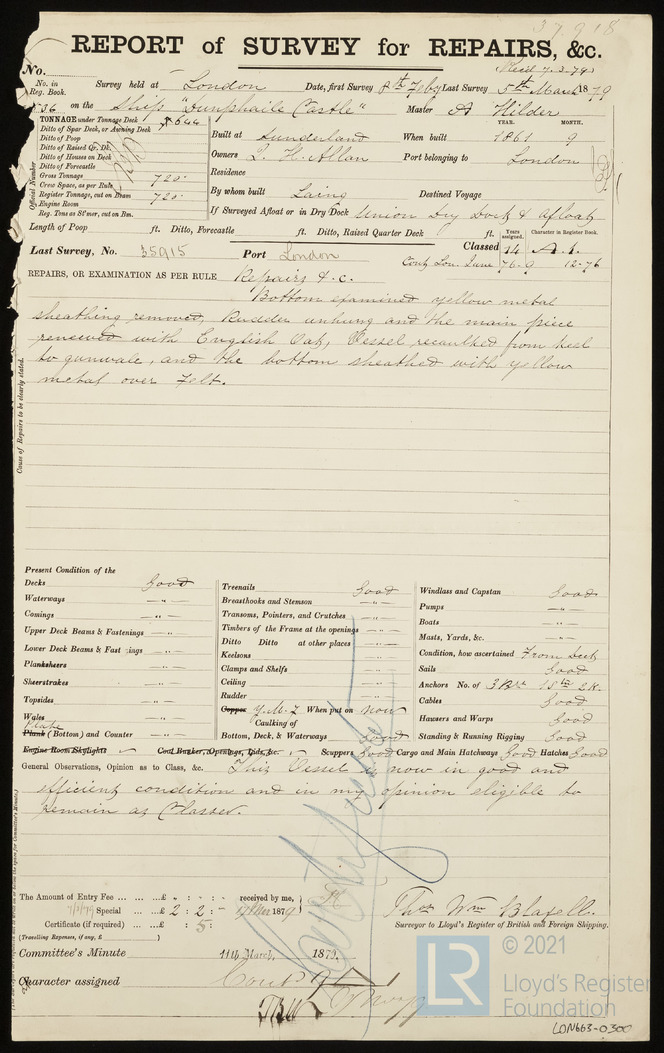 37918
REPORT of SURVEY for REPAIRS, &c.
No.
Recd 7.3.79
No. in Reg. Book. Survey held at London Date, first Survey 8th Feby Last Survey 5th March 1879
536 on the Ship "Dunphaile Castle" Master A Hilder
TONNAGE under Tonnage Deck 644
Ditto of Spar Deck, or Awning Deck
Ditto of Poop
Ditto of Raised Qr. Dk.
Ditto of Houses on Deck
Ditto of Forecastle
Gross Tonnage 720
Crew Space, as per Rule
Register Tonnage, cut on Beam 720
Engine Room
Reg. Tons as St'mer, cut on Bm.
Official Number
YEAR. MONTH.
Built at Sunderland When built 1861 9
Owners L. H. Allan Port belonging to London
Residence
By whom built Laing Destined Voyage
If Surveyed Afloat or in Dry Dock Union Dry Dock & afloat
Length of Poop ft. Ditto, Forecastle ft. Ditto, Raised Quarter Deck ft.
Years assigned. Character in Register Book.
Last Survey, No. 35915 Port London Classed 14 A.1.
Cont. Lon. June 76-9 12-76
REPAIRS, OR EXAMINATION AS PER RULE Repairs &c.
Bottom examined yellow metal
sheathing removed, Rudder unhung and the main piece
renewed with English Oak, Vessel recaulked from keel
to gunwale, and the bottom sheathed with yellow
metal over Felt.
Cause of Repairs to be clearly stated.
Present Condition of the
Decks Good
Waterways — " —
Comings — " —
Upper Deck Beams & Fastenings — " —
Lower Deck Beams & Fastenings — " —
Planksheers — " —
Sheerstrakes — " —
Topsides — " —
Wales — " —
Plank (Bottom) and Counter — " —
Engine Room Skylights Coal Bunker, Openings, Lids, &c.
Treenails Good
Breasthooks and Stemson — " —
Transoms, Pointers, and Crutches — " —
Timbers of the Frame at the openings — " —
Ditto Ditto at other places — " —
Keelsons — " —
Clamps and Shelfs — " —
Ceiling — " —
Rudder — " —
Copper Y.M. When put on now
Caulking of
Bottom, Deck, & Waterways Good
Scuppers Good Cargo and Main Hatchways Good Hatches Good
Windlass and Capstan Good
Pumps — " —
Boats — " —
Masts, Yards, &c. — " —
Condition, how ascertained From Deck
Sails Good
Anchors No. of 3 Br 1 St 2 K.
Cables Good
Hawsers and Warps Good
Standing & Running Rigging Good
General Observations, Opinion as to Class, &c. This Vessel is now in good and
efficient condition and in my opinion eligible to
remain as Classed.
The Amount of Entry Fee ... £ : : received by me,
Special ... £ 2 : 2 : - 1879
Certificate (if required) ... £ : 5 :
(Travelling Expenses, if any, £ )
Thos Wm Blaxell.
Surveyor to Lloyd's Register of British and Foreign Shipping.
Committee's Minute 11th March, 1879.
Character assigned Contd A 1
© 2021
LR Lloyd's Register Foundation
LON663-0300